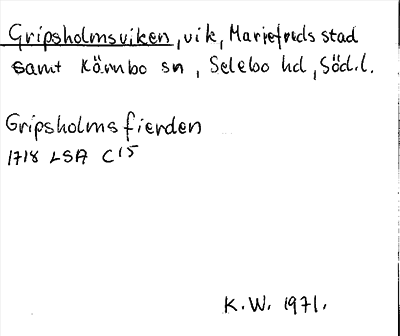 Gripsholmsviken, vik, Mariefreds stad
samt Kärnbo sn, Selebo hd, Söd.l.
Gripsholms fierden
1718 LSA C15
K.W. 1971.